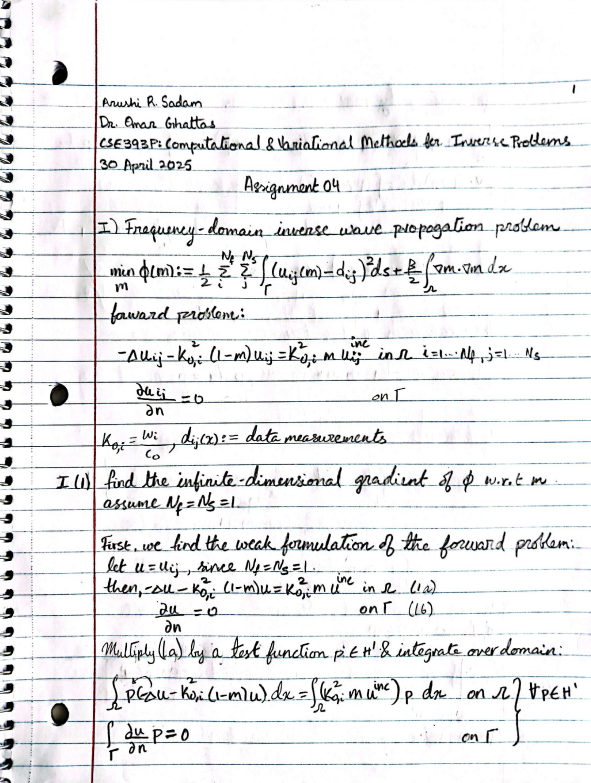 1
Arushi R. Sadam
Dr. Omar Ghattas
CSE393P: Computational & Variational Methods for Inverse Problems
30 April 2025
Assignment 04
I) Frequency-domain inverse wave propogation problem
min_m ϕ(m) := 1/2 Σ_i^{N_f} Σ_j^{N_s} ∫_Γ (u_ij(m) - d_ij)² ds + β/2 ∫_Ω ∇m·∇m dx
forward problem:
-Δu_ij - k²_{0,i} (1-m) u_ij = k²_{0,i} m u_ij^inc in Ω i=1...N_f, j=1...N_s
∂u_ij/∂n = 0 on Γ
k_{0,i} = ω_i/c_0, d_ij(x) := data measurements
I (1) find the infinite-dimensional gradient of ϕ w.r.t m
assume N_f = N_s = 1
First, we find the weak formulation of the forward problem:
let u = u_ij, since N_f = N_s = 1.
then, -Δu - k²_{0,i} (1-m)u = k²_{0,i} m u^inc in Ω (1a)
∂u/∂n = 0 on Γ (1b)
Multiply (1a) by a test function p ∈ H¹ & integrate over domain:
∫_Ω p(-Δu - k²_{0,i} (1-m)u) dx = ∫_Ω (k²_{0,i} m u^inc) p dx on Ω } ∀p∈H¹
∫_Γ ∂u/∂n p = 0 on Γ